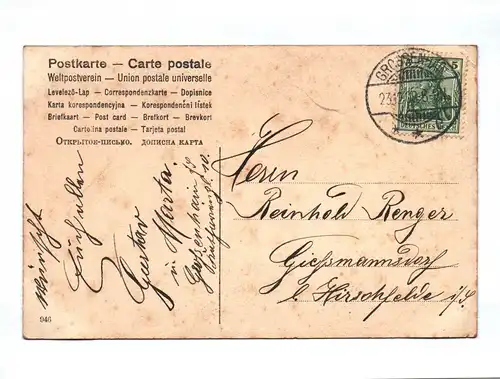 Postkarte — Carte postale
Weltpostverein — Union postale universelle
Levelező-Lap — Correspondenzkarte — Dopisnice
Karta korespondencyjna — Korespondenční lístek
Briefkaart — Post card — Brefkort — Brevkort
Cartolina postale — Tarjeta postal
Открытое-письмо. дописна карта
GROSSENHAIN
5
Herrn
Reinhold Renger
Gießmannsdorf
b. Hirschfelde i/S.
wünscht
Euch allen
Gustav
u. Marta.
Großenhain
946